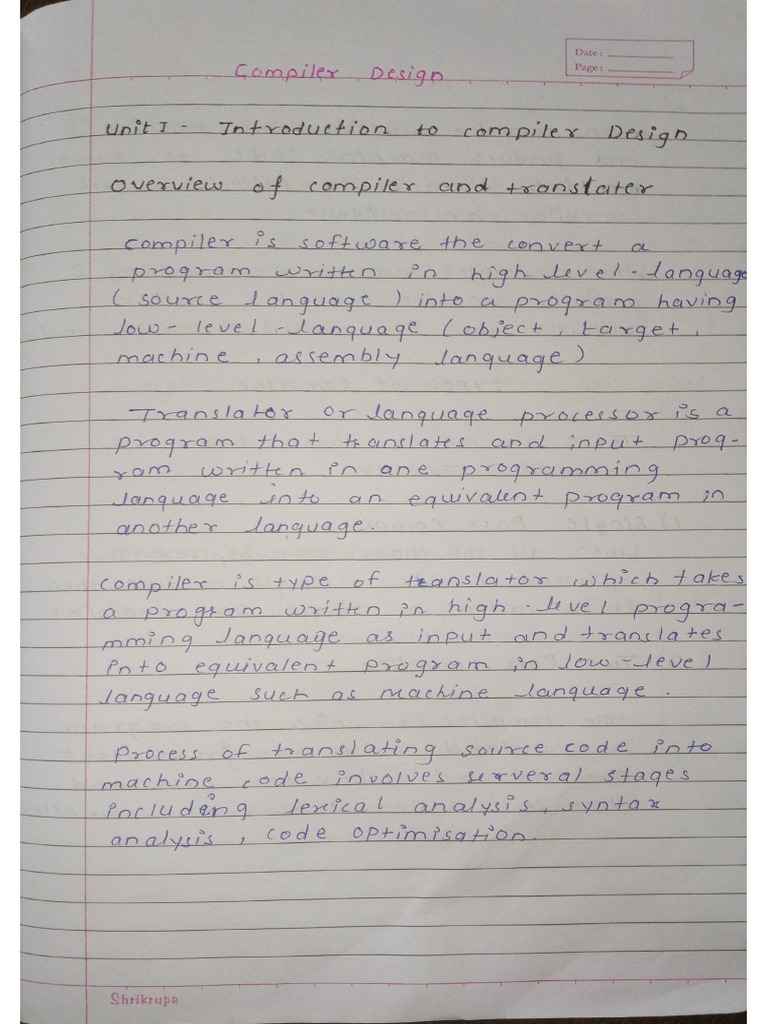 Date: 
Page: 
Compiler Design
Unit I - Introduction to compiler Design
Overview of compiler and translater
Compiler is software the convert a
program written in high level-language
(source language) into a program having
low-level-language (object, target,
machine, assembly language)
Translator or language processor is a
program that translates and input prog-
ram written in one programming
language into an equivalent program in
another language.
compiler is type of translator which takes
a program written in high-level progra-
mming language as input and translates
into equivalent program in low-level
language such as machine language.
Process of translating source code into
machine code involves serveral stages
including lexical analysis, syntax
analysis, code optimisation.
Shrikrupa